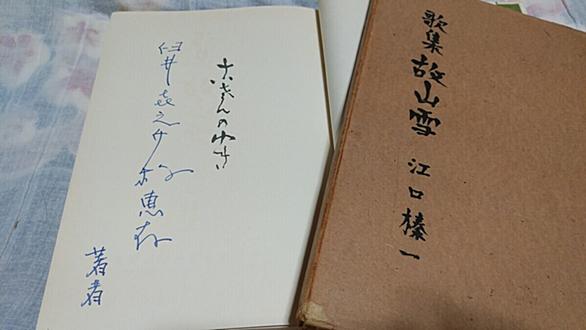 歌集 故山雪 江口榛一
こざんのゆき
臼井喜之介様 恵存
著者